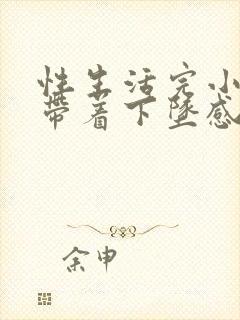 性生活完小
带着下坠感
余申